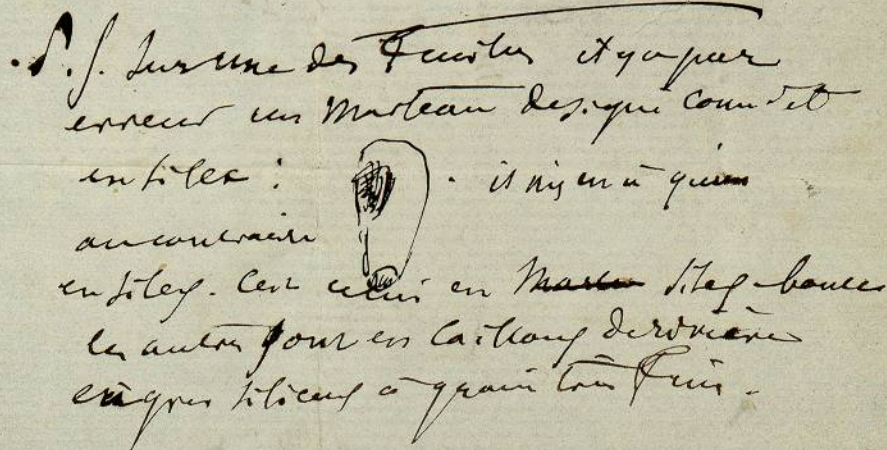 P.S. Sur une des Feuilles il y a par
erreur un Marteau designé comme
en silex : il n'y en a qu'un
au contraire
en silex. C'est celui en silex
les autres sont en Cailloux de rivière
en gres siliceux à grain très Fin.